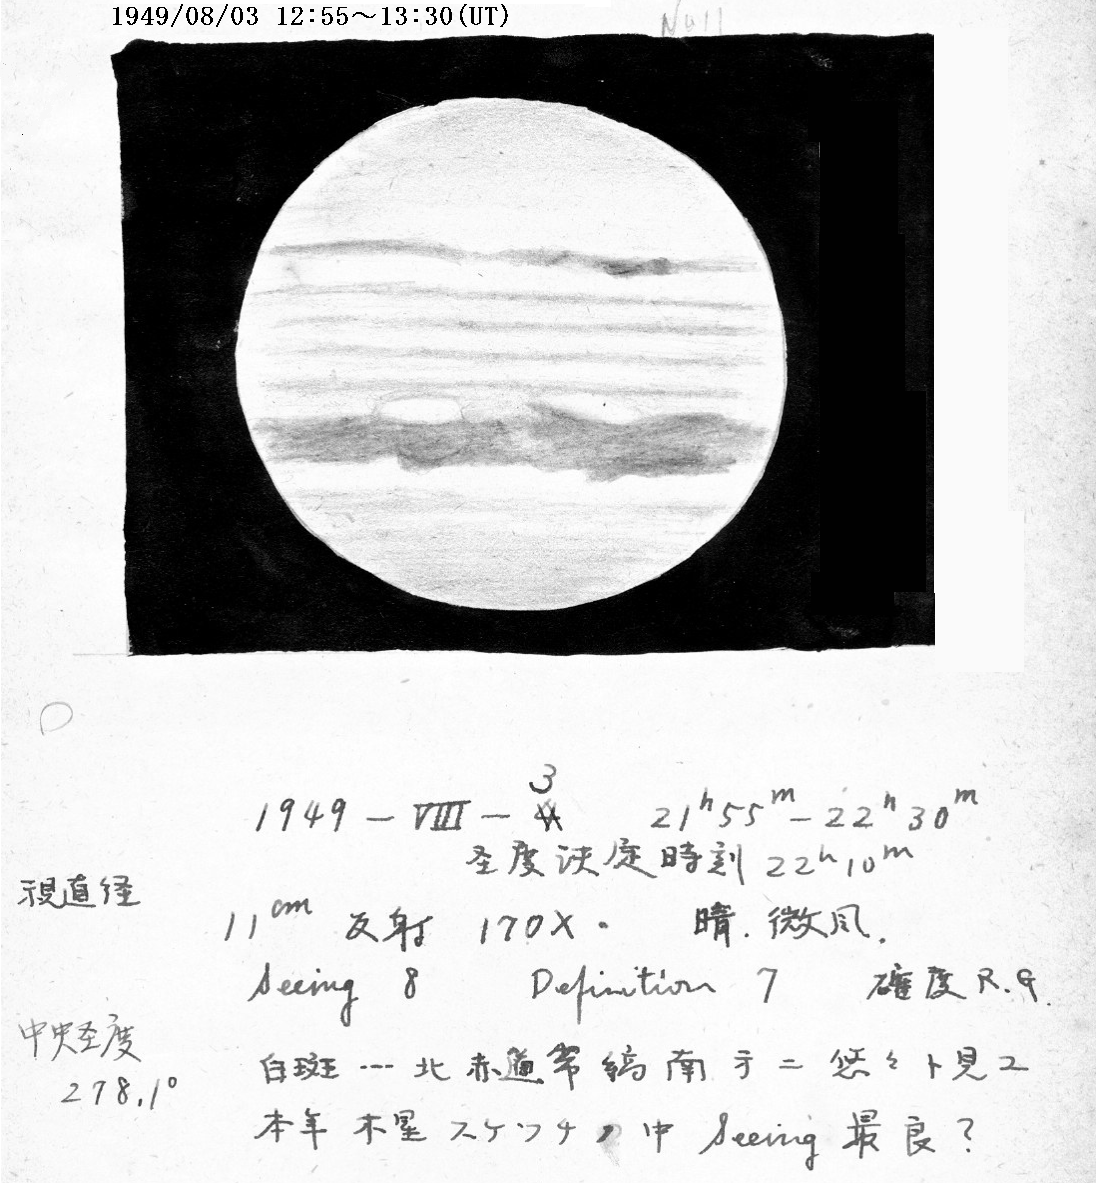 1949/08/03 12:55～13:30(UT)
Null
3
1949 － VIII － 21ʰ55ᵐ－22ʰ30ᵐ
圣度决定時刻 22ʰ10ᵐ
視直径
11ᶜᵐ 反射 170X. 晴. 微风.
Seeing 8 Definition 7 確度 R.G.
中央圣度
278.1°
白斑…北赤道帯縞南方ニ悠々ト見ユ
本年木星スケッチノ中 Seeing 最良?